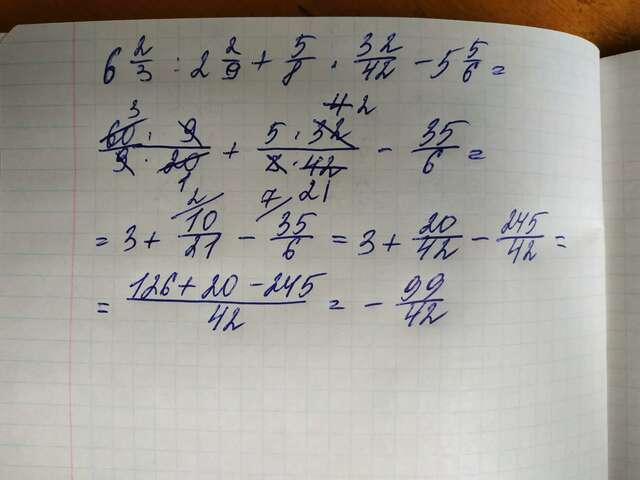 6 2/3 : 2 2/9 + 5/8 · 32/42 - 5 5/6 =
3 4 2
60 · 9/9 · 20 + 5 · 32/8 · 42 - 35/6 =
1 21
2/ 7/
= 3 + 10/21 - 35/6 = 3 + 20/42 - 245/42 =
= 126 + 20 - 245/42 = - 99/42